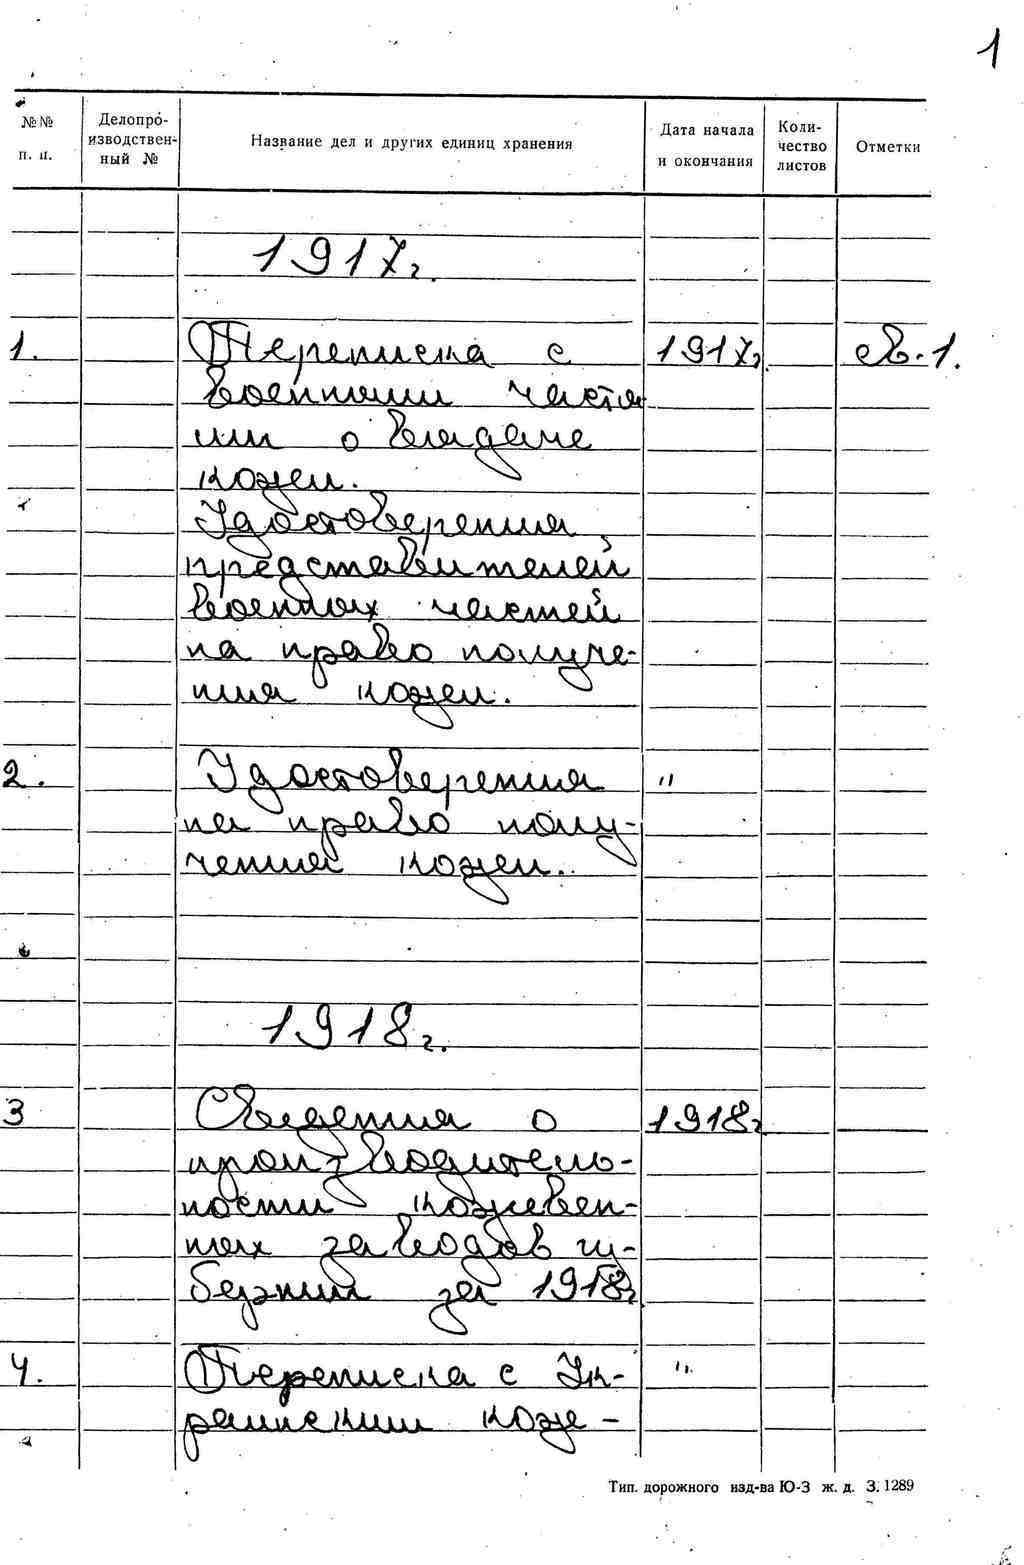 1
№№ п. п.
Делопро-
изводствен-
ный №
Название дел и других единиц хранения
Дата начала
и окончания
Коли-
чество
листов
Отметки
1917г.
1. Переписка с 1917г.
военными частя
ми о выдаче
кожи.
Удостоверения
представителей
военных частей
на право получе-
ния кожи.
2. Удостоверения "
на право полу-
чения кожи.
1918г.
3 Сведения о 1918г
производитель-
ности кожевен-
ных заводов гу-
бернии за 1918г
4. Переписка с Ук- "
раинским коже-
Тип. дорожного изд-ва Ю-З ж. д. З. 1289